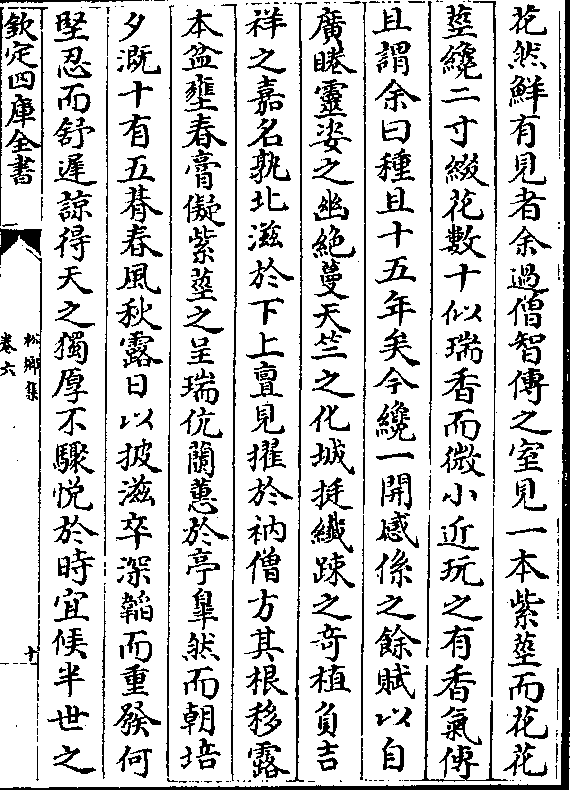 花然鮮有見者余過僧智傳之室見一本紫莖而花花
莖纔二寸綴花數十似瑞香而微小近玩之有香氣傳
且謂余曰種且十五年矣今纔一開感係之餘賦以自
廣睠靈姿之幽絶蔓天竺之化城挺纖踈之奇植負吉
祥之嘉名孰北滋於下上亶見擢於衲僧方其根移露
本盆壅春膏儗紫莖之呈瑞伉蘭蕙於亭臯然而朝培
夕溉十有五朞春風秋露日以披滋卒深韜而重發何
堅忍而舒遲諒得天之獨厚不驟悦於時宜候半世之
欽定四庫全書
松鄉集
卷六
十